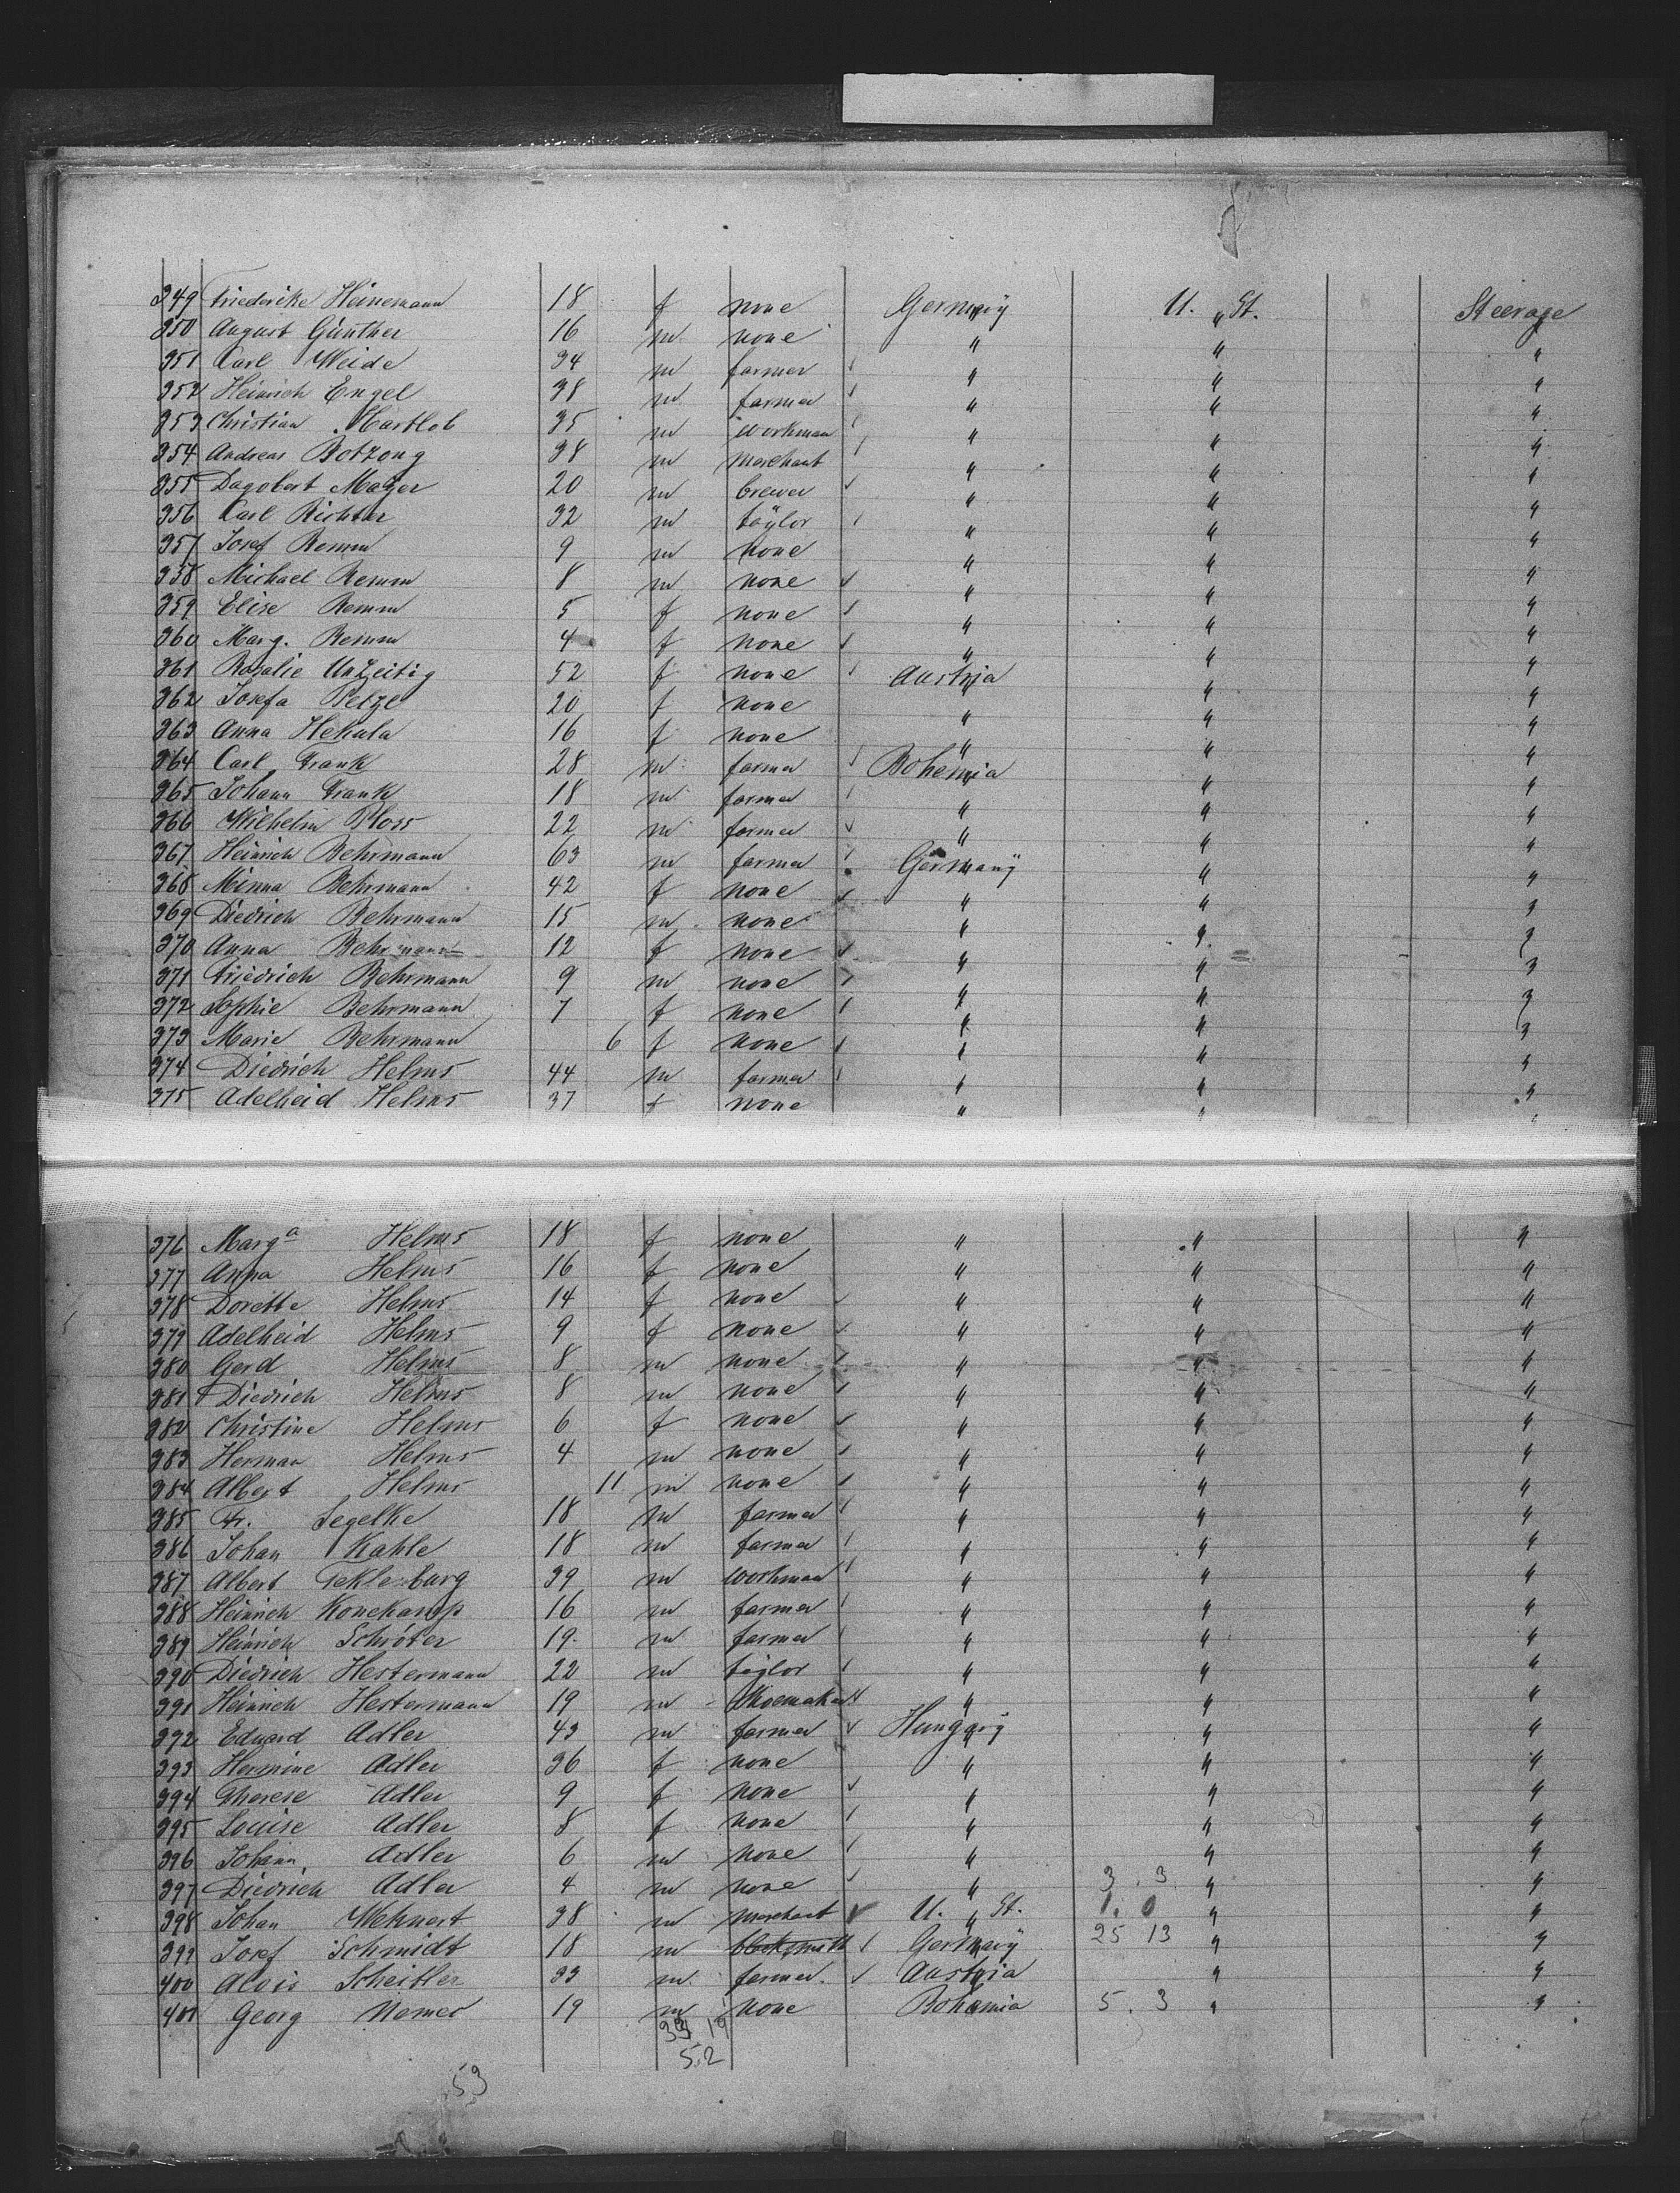 349 Friederike Heinemann 18 f none Germany U. St. Steerage
350 August Günther 16 m none " " "
351 Carl Weide 34 m farmer " " "
352 Heinrich Engel 38 m farmer " " "
353 Christian Hartlob 35 m workman " " "
354 Andreas Botzong 38 m merchant " " "
355 Dagobert Mayer 20 m brewer " " "
356 Carl Richter 32 m taylor " " "
357 Josef Remm 9 m none " " "
358 Michael Remm 8 m none " " "
359 Elise Remm 5 f none " " "
360 Marg. Remm 4 f none " " "
361 Rosalie Unzeitig 52 f none Austria " "
362 Josefa Petzel 20 f none " " "
363 Anna Hekala 16 f none " " "
364 Carl Frank 28 m farmer Bohemia " "
365 Johann Frank 18 m farmer " " "
366 Wilhelm Ploss 22 m farmer " " "
367 Heinrich Behrmann 63 m farmer Germany " "
368 Minna Behrmann 42 f none " " "
369 Diedrich Behrmann 15 m none " " "
370 Anna Behrmann 12 f none " " "
371 Friedrich Behrmann 9 m none " " "
372 Sophie Behrmann 7 f none " " "
373 Marie Behrmann 6 f none " " "
374 Diedrich Helms 44 m farmer " " "
375 Adelheid Helms 37 f none " " "
376 Marga Helms 18 f none " " "
377 Anna Helms 16 f none " " "
378 Dorette Helms 14 f none " " "
379 Adelheid Helms 9 f none " " "
380 Gerd Helms 8 m none " " "
381 Diedrich Helms 8 m none " " "
382 Christine Helms 6 f none " " "
383 Herman Helms 4 m none " " "
384 Albert Helms 11 m none " " "
385 Fr. Segelke 18 m farmer " " "
386 Johan Kahle 18 m farmer " " "
387 Albert Teklenburg 39 m workman " " "
388 Heinrich Konekamp 16 m farmer " " "
389 Heinrich Schröter 19 m farmer " " "
390 Diedrich Hestermann 22 m taylor " " "
391 Heinrich Hestermann 19 m Shoemaker " " "
392 Eduard Adler 43 m farmer Hungary " "
393 Hermine Adler 36 f none " " "
394 Therese Adler 9 f none " " "
395 Louise Adler 8 f none " " "
396 Johann Adler 6 m none " " "
397 Diedrich Adler 4 m none " 3. 3 " "
398 Johan Wehnert 38 m merchant U. St. 1. 0 " "
399 Josef Schmidt 18 m blaksmith Germany 25 13 " "
400 Alois Scheitler 33 m farmer Austria " "
401 Georg 19 m none Bohemia 5. 3 " "
19
52
53